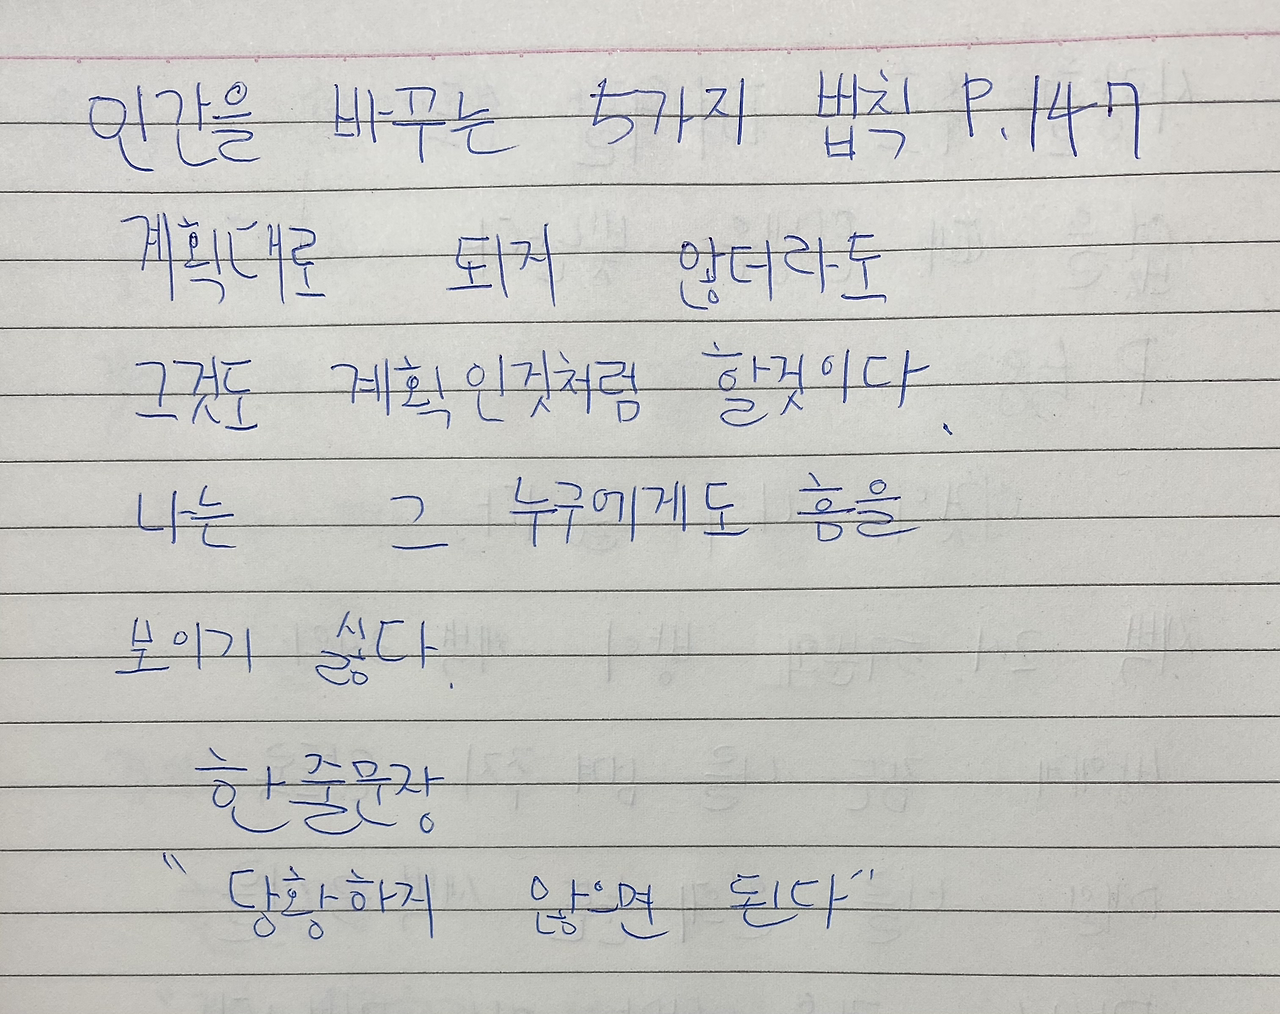 인간을 바꾸는 5가지 법칙 P.147
계획대로 되지 않더라도
그것도 계획인것처럼 할것이다.
나는 그 누구에게도 흠을
보이기 싫다.
한줄문장
"당황하지 않으면 된다"